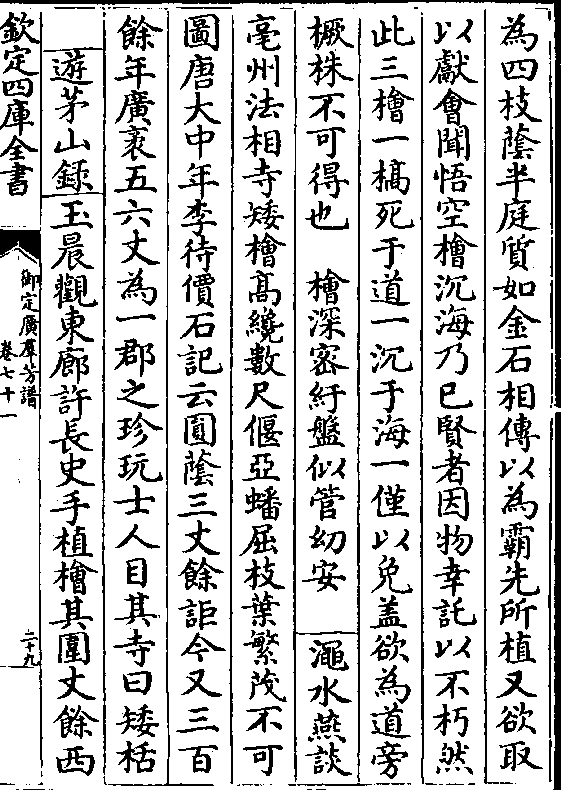 為四枝蔭半庭質如金石相傳以為霸先所植又欲取
以獻會聞悟空檜沉海乃已賢者因物幸託以不朽然
此三檜一槁死于道一沉于海一僅以免蓋欲為道旁
橛株不可得也　檜深密紆盤似管幼安　澠水燕談
亳州法相寺矮檜髙纔數尺偃亞蟠屈枝葉繁茂不可
圖唐大中年李待價石記云圓蔭三丈餘詎今又三百
餘年廣袤五六丈為一郡之珍玩士人目其寺曰矮栝
遊茅山錄玉晨觀東廊許長史手植檜其圍丈餘西
欽定四庫全書
御定廣羣芳譜
卷七十一
二十九